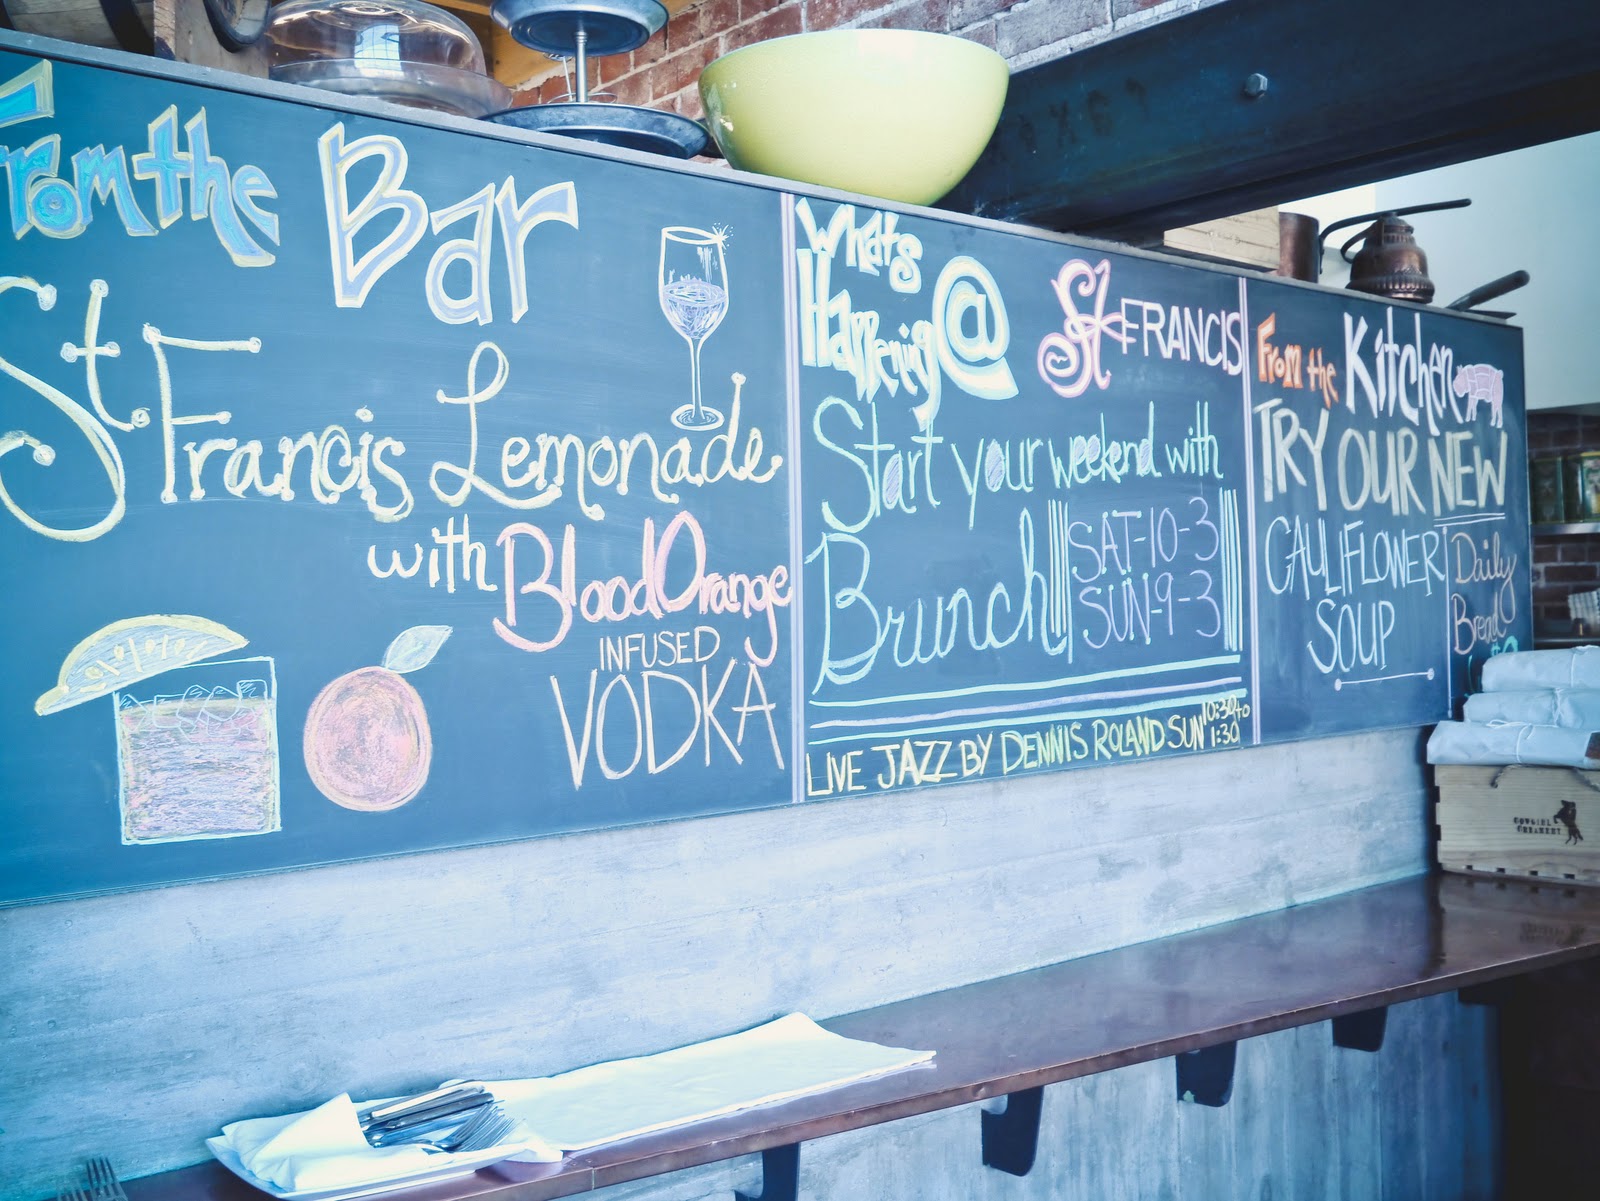 From the Bar
St. Francis Lemonade
with Blood Orange
INFUSED
VODKA
What's
Happening @ St FRANCIS
Start your weekend with
Brunch
SAT-10-3
SUN-9-3
LIVE JAZZ BY DENNIS ROLAND SUN 10:30 to
1:30
From the Kitchen
TRY OUR NEW
CAULIFLOWER
SOUP
Daily
Bread
COWGIRL
CREAMERY